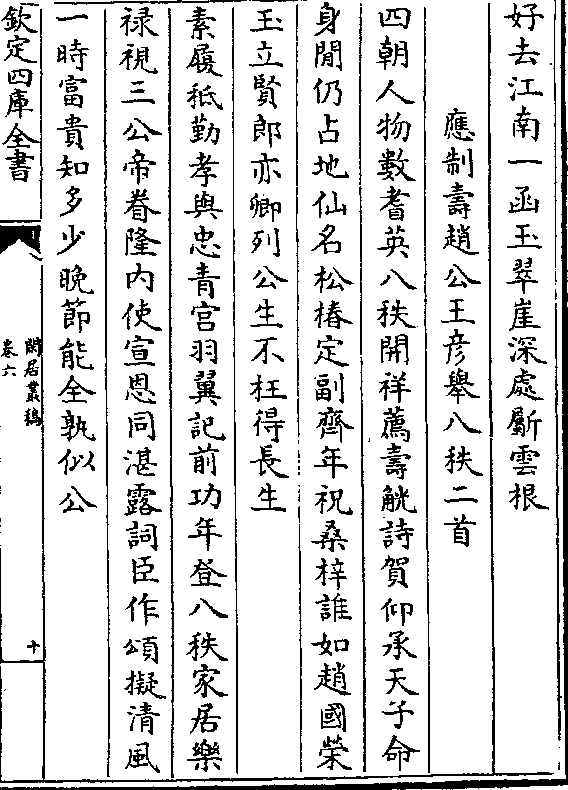 好去江南一函玉翠崖深處斸雲根
應制壽趙公王彦舉八秩二首
四朝人物數耆英八秩開祥薦壽觥詩賀仰承天子命
身閒仍占地仙名松椿定副齊年祝桑梓誰如趙國榮
玉立賢郎亦卿列公生不枉得長生
素履秪勤孝與忠青宮羽翼記前功年登八秩家居樂
禄視三公帝眷隆内使宣恩同湛露詞臣作頌擬清風
一時富貴知多少晚節能全孰似公
欽定四庫全書
閒居叢稿
卷六
十